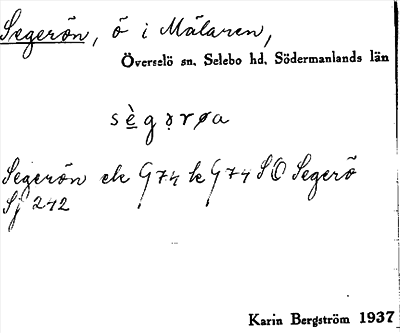 Segerön, ö i Mälaren,
Överselö sn, Selebo hd, Södermanlands län
sègərøa
Segerön ek G74 k G74 SO Segerö
Sj 242
Karin Bergström 1937